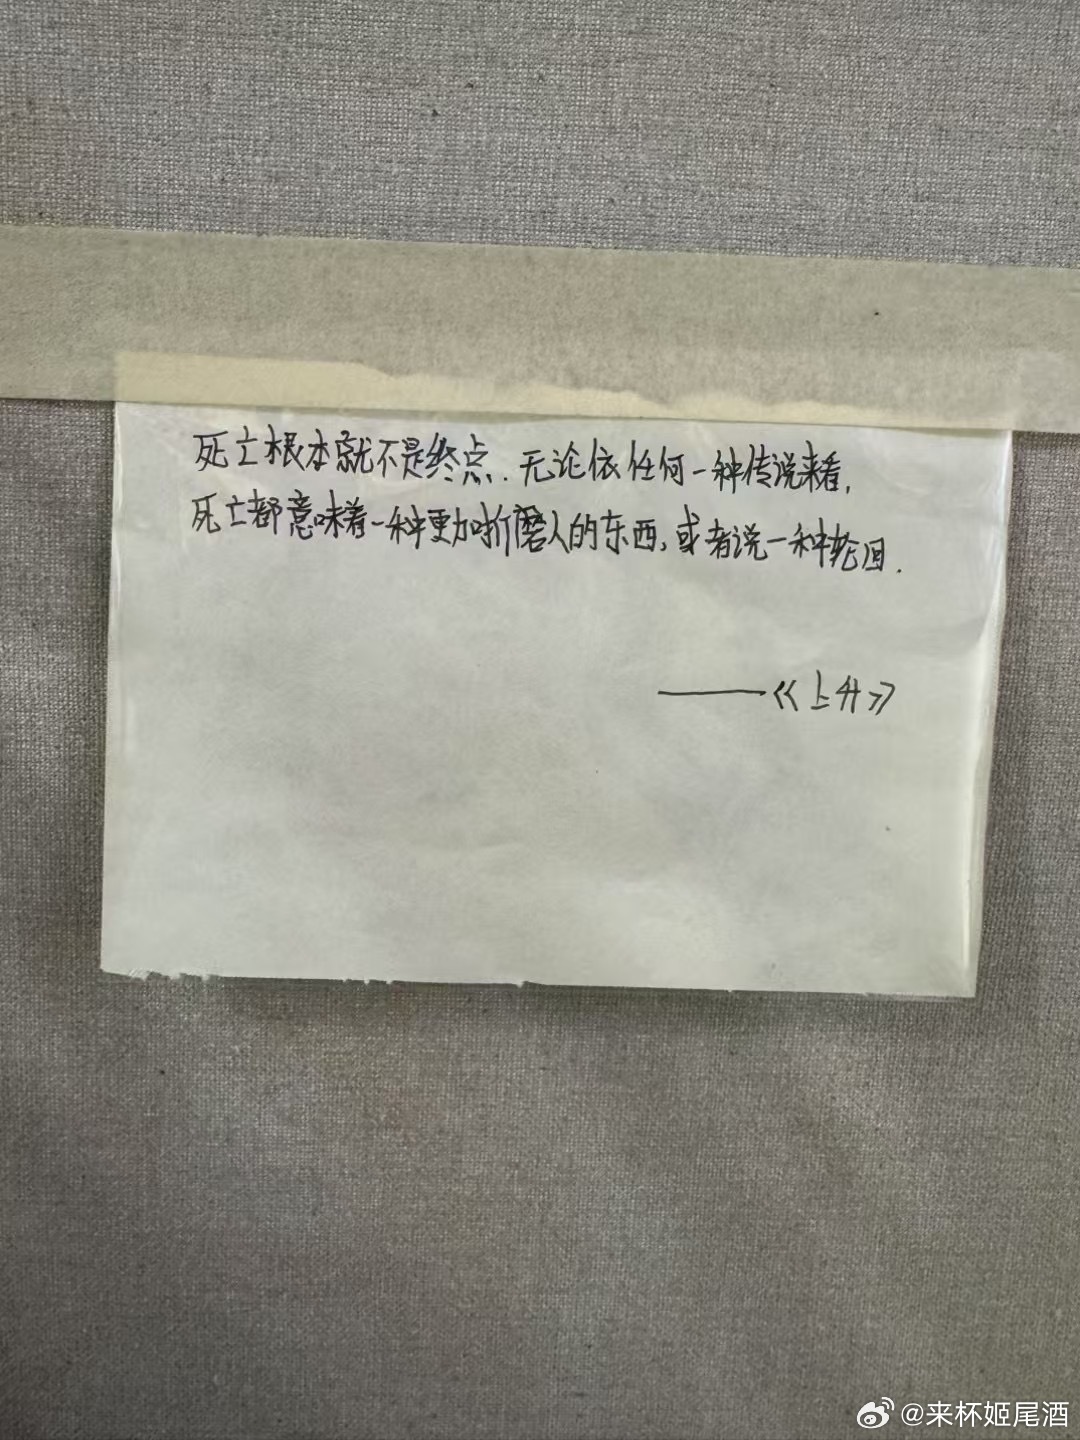 死亡根本就不是终点.无论依任何一种传说来看,
死亡都意味着一种更加折磨人的东西,或者说一种轮回.
——《上升》
@来杯姬尾酒